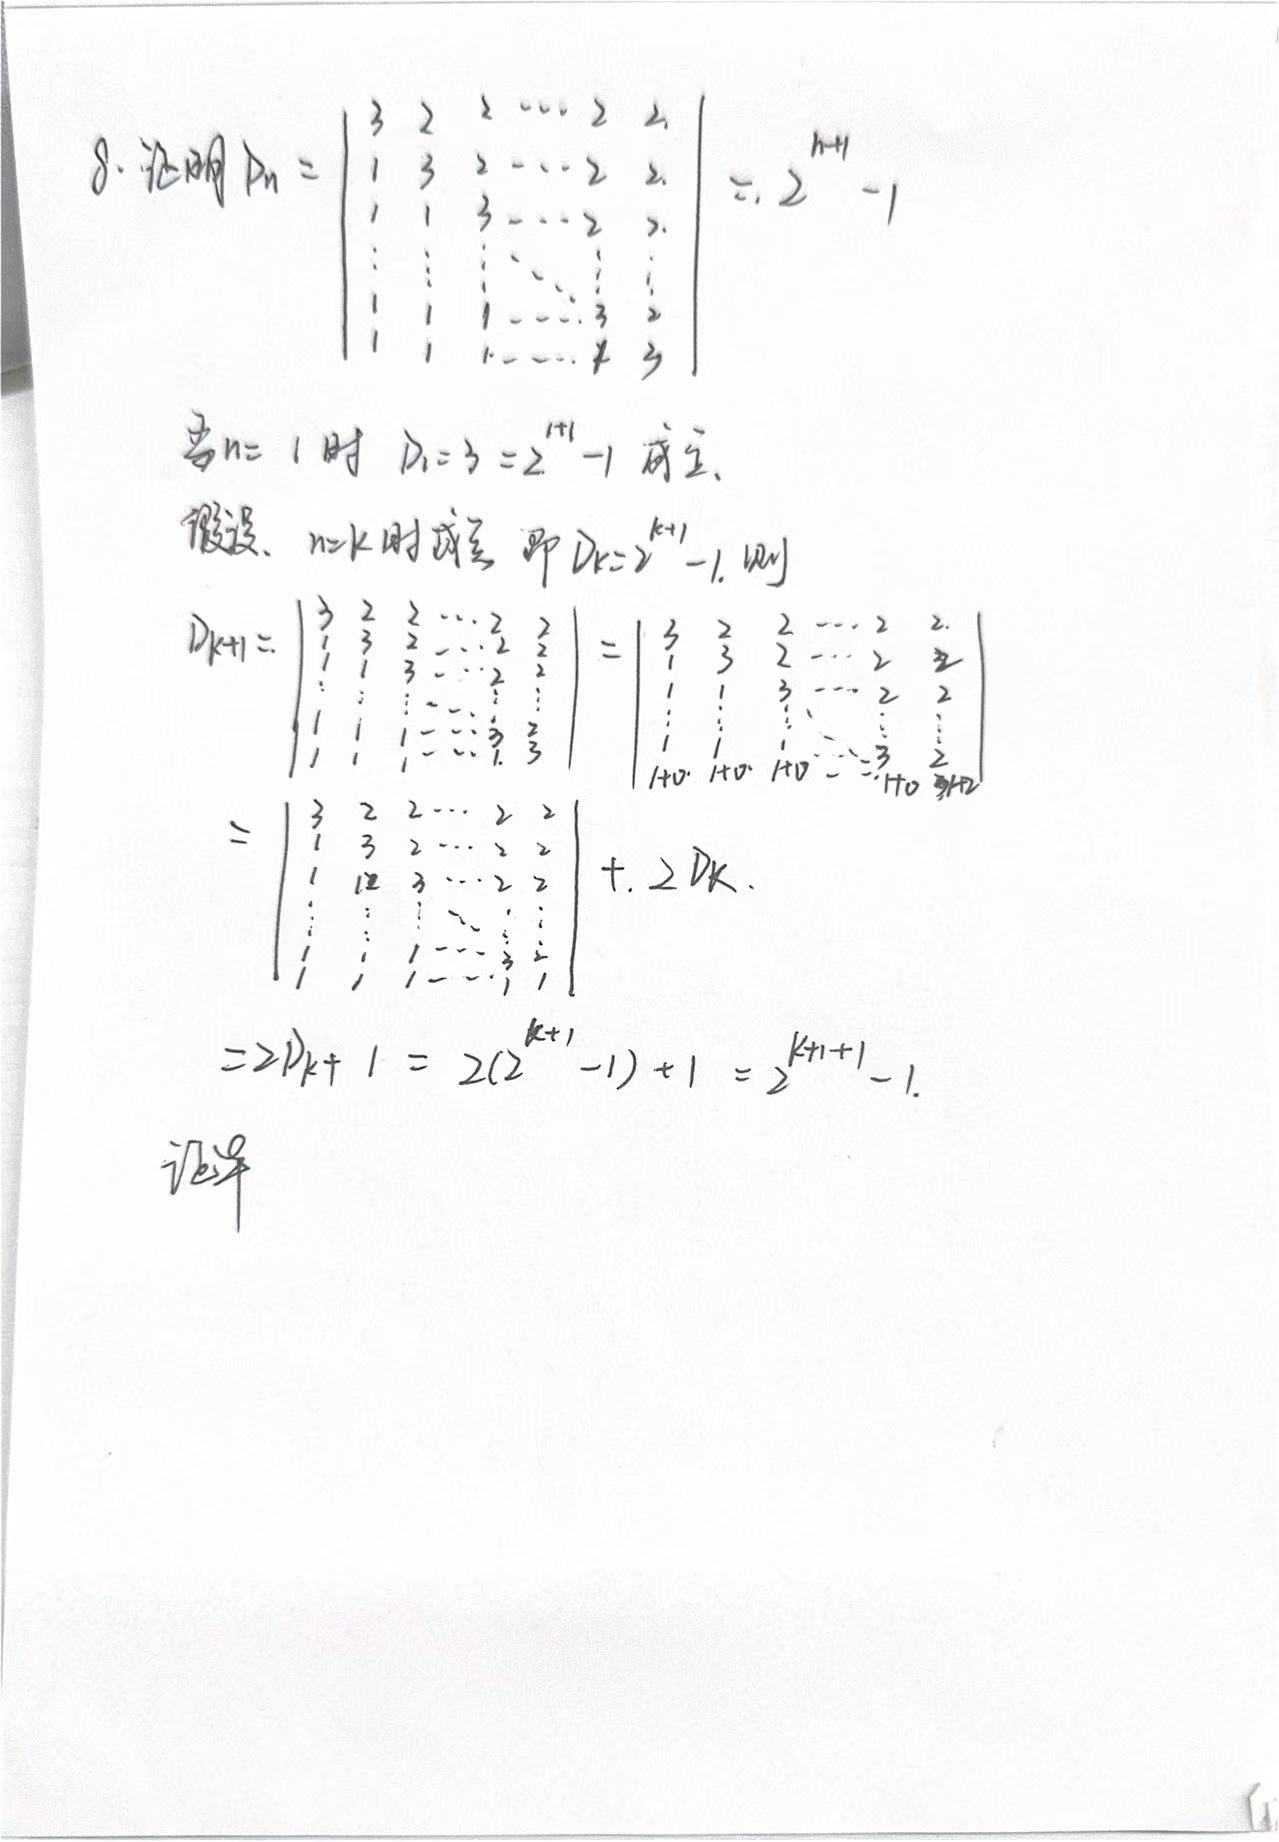 8. 证明 Dn = | 3 2 2 ... 2 2 | = 2^{n+1} - 1
| 1 3 2 ... 2 2 |
| 1 1 3 ... 2 2 |
| ⋮ ⋮ ⋮ ⋱ ⋮ ⋮ |
| 1 1 1 ... 3 2 |
| 1 1 1 ... 1 3 |
当n=1时 D₁=3=2^{1+1}-1 成立、
假设、n=k时成立 即 Dk=2^{k+1}-1. 则
Dk+1 = | 3 2 2 ... 2 2 | = | 3 2 2 ... 2 2 |
| 1 3 2 ... 2 2 | | 1 3 2 ... 2 2 |
| 1 1 3 ... 2 2 | | 1 1 3 ... 2 2 |
| ⋮ ⋮ ⋮ ⋱ ⋮ ⋮ | | ⋮ ⋮ ⋮ ⋱ ⋮ ⋮ |
| 1 1 1 ... 3 2 | | 1 1 1 ... 3 2 |
| 1 1 1 ... 1 3 | | 1+0 1+0 1+0 ... 1+0 1+2 |
= | 3 2 2 ... 2 2 | + 2Dk.
| 1 3 2 ... 2 2 |
| 1 1 3 ... 2 2 |
| ⋮ ⋮ ⋮ ⋱ ⋮ ⋮ |
| 1 1 1 ... 3 2 |
| 1 1 1 ... 1 1 |
= 2Dk + 1 = 2(2^{k+1} - 1) + 1 = 2^{k+1+1} - 1.
证毕